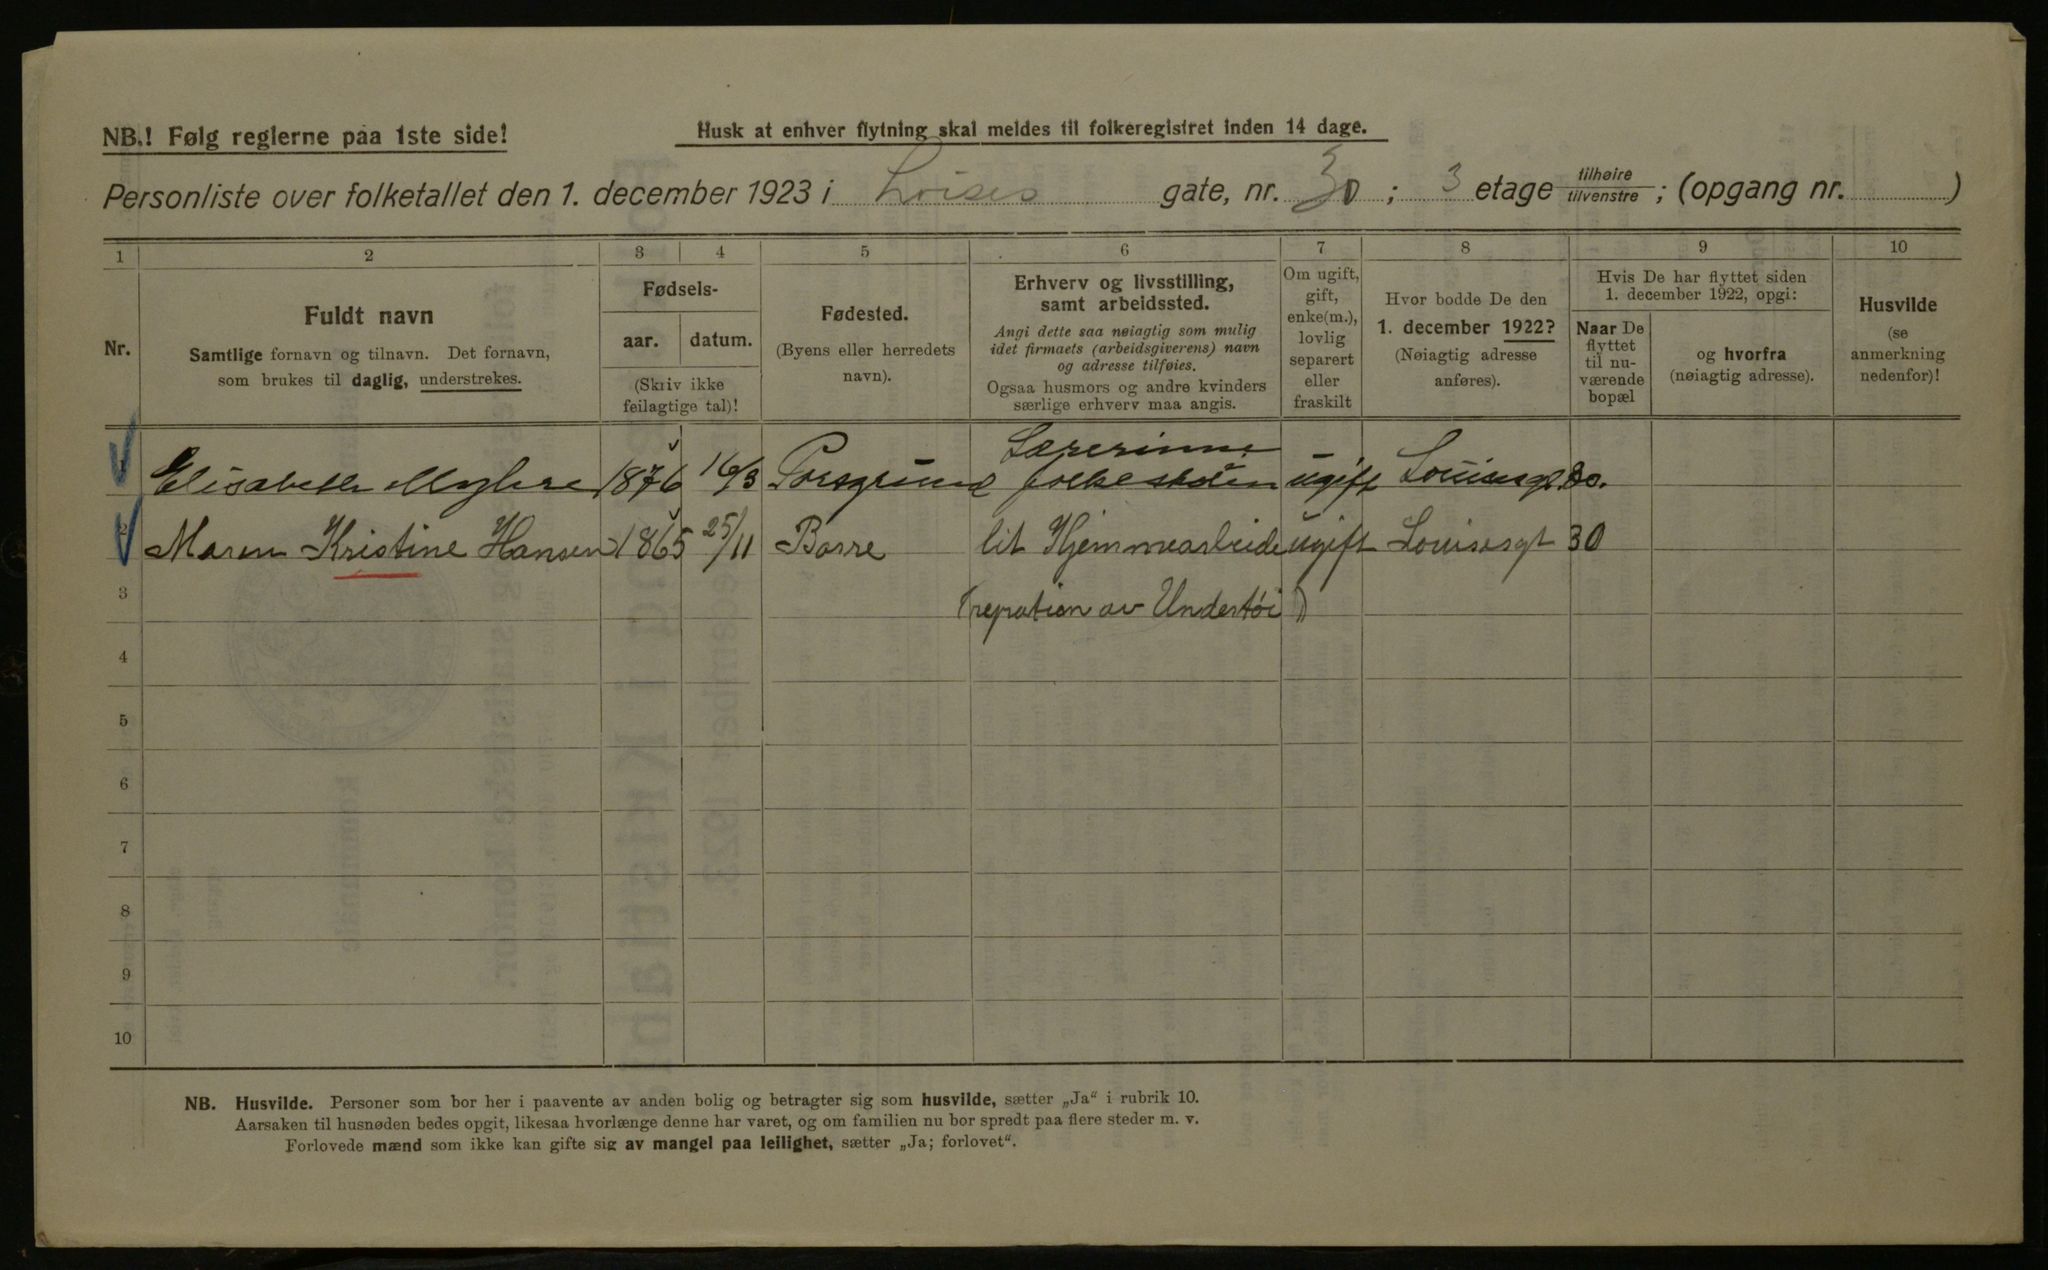 NB.! Følg reglerne paa 1ste side!
Husk at enhver flytning skal meldes til folkeregistret inden 14 dage.
Personliste over folketallet den 1. december 1923 i Loises gate, nr. 30; 3 etage tilhøire tilvenstre; (opgang nr. )
1 2 3 4 5 6 7 8 9 10
Nr.
Fuldt navn
Samtlige fornavn og tilnavn. Det fornavn,
som brukes til daglig, understrekes.
Fødsels-
aar. datum.
(Skriv ikke
feilagtige tal)!
Fødested.
(Byens eller herredets
navn).
Erhverv og livsstilling,
samt arbeidssted.
Angi dette saa nøiagtig som mulig
idet firmaets (arbeidsgiverens) navn
og adresse tilføies.
Ogsaa husmors og andre kvinders
særlige erhverv maa angis.
Om ugift,
gift,
enke(m.),
lovlig
separert
eller
fraskilt
Hvor bodde De den
1. december 1922?
(Nøiagtig adresse
anføres).
Hvis De har flyttet siden
1. december 1922, opgi:
Naar De
flyttet
til nu-
værende
bopæl
og hvorfra
(nøiagtig adresse).
Husvilde
(se
anmerkning
nedenfor)!
Lærerinne
1 Elisabeth Myhre 1876 16/3 Porsgrund folkeskolen ugift Louisesgt. 30.
2 Maren Kristine Hansen 1865 25/11 Borre lit Hjemmearbeide ugift Louisesgt 30
3 (repration av Undertøi)
4
5
6
7
8
9
10
NB. Husvilde. Personer som bor her i paavente av anden bolig og betragter sig som husvilde, sætter „Ja“ i rubrik 10.
Aarsaken til husnøden bedes opgit, likesaa hvorlænge denne har varet, og om familien nu bor spredt paa flere steder m. v.
Forlovede mænd som ikke kan gifte sig av mangel paa leilighet, sætter „Ja; forlovet“.